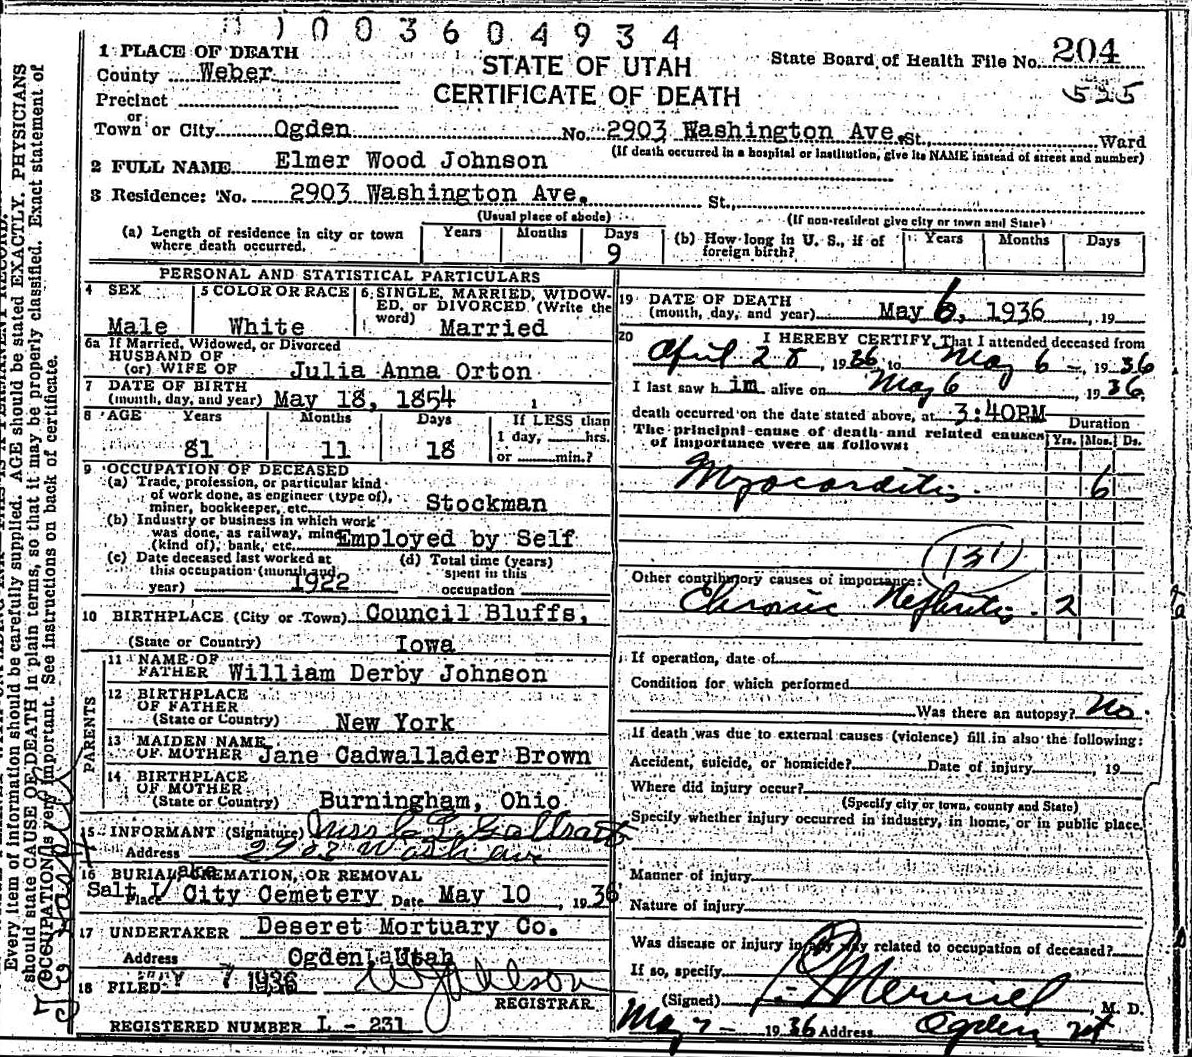 1003604934
1 PLACE OF DEATH
STATE OF UTAH
State Board of Health File No. 204
County Weber
CERTIFICATE OF DEATH
525
Precinct
or
Town or City Ogden No. 2903 Washington Ave. St., Ward
(If death occurred in a hospital or institution, give its NAME instead of street and number)
2 FULL NAME Elmer Wood Johnson
3 Residence: No. 2903 Washington Ave. St.,
(Usual place of abode) (If non-resident give city or town and State)
(a) Length of residence in city or town where death occurred. Years Months Days 9
(b) How long in U. S., if of foreign birth? Years Months Days
PERSONAL AND STATISTICAL PARTICULARS
4 SEX Male
5 COLOR OR RACE White
6 SINGLE, MARRIED, WIDOWED, or DIVORCED (Write the word) Married
6a If Married, Widowed, or Divorced
HUSBAND OF
(or) WIFE OF Julia Anna Orton
7 DATE OF BIRTH
(month, day, and year) May 18, 1854
8 AGE Years Months Days If LESS than
81 11 18 1 day, hrs.
or min.?
9 OCCUPATION OF DECEASED
(a) Trade, profession, or particular kind
of work done, as engineer (type of),
miner, bookkeeper, etc. Stockman
(b) Industry or business in which work
was done, as railway, mine
(kind of), bank, etc. Employed by Self
(c) Date deceased last worked at
this occupation (month and
year) 1922
(d) Total time (years)
spent in this
occupation
10 BIRTHPLACE (City or Town) Council Bluffs,
(State or Country) Iowa
PARENTS
11 NAME OF
FATHER William Derby Johnson
12 BIRTHPLACE
OF FATHER
(State or Country) New York
13 MAIDEN NAME
OF MOTHER Jane Cadwallader Brown
14 BIRTHPLACE
OF MOTHER
(State or Country) Burningham, Ohio
15 INFORMANT (Signature)
Address 2903 Wash ave
16 BURIAL, CREMATION, OR REMOVAL
Place Salt Lake City Cemetery Date May 10, 1936
17 UNDERTAKER Deseret Mortuary Co.
Address Ogden, Utah
18 FILED 7 1936
REGISTRAR
REGISTERED NUMBER L - 231
19 DATE OF DEATH
(month, day, and year) May 6, 1936, 19
20 I HEREBY CERTIFY, That I attended deceased from
April 28, 1936 to May 6 -, 1936
I last saw h im alive on May 6, 1936,
death occurred on the date stated above, at 3:40PM
Duration
The principal cause of death and related causes
of importance were as follows: Yrs. Mos. Ds.
Myocarditis 6
131
Other contributory causes of importance:
Chronic Nephritis 2
If operation, date of
Condition for which performed
Was there an autopsy? No.
If death was due to external causes (violence) fill in also the following:
Accident, suicide, or homicide? Date of injury, 19
Where did injury occur?
(Specify city or town, county and State)
Specify whether injury occurred in industry, in home, or in public place.
Manner of injury
Nature of injury
Was disease or injury in any way related to occupation of deceased?
If so, specify
(Signed) Merrill M. D.
May 7 - 1936 Address Ogden Ut
Every item of information should be carefully supplied. AGE should be stated EXACTLY. PHYSICIANS
should state CAUSE OF DEATH in plain terms, so that it may be properly classified. Exact statement of
OCCUPATION is very important. See instructions on back of certificate.